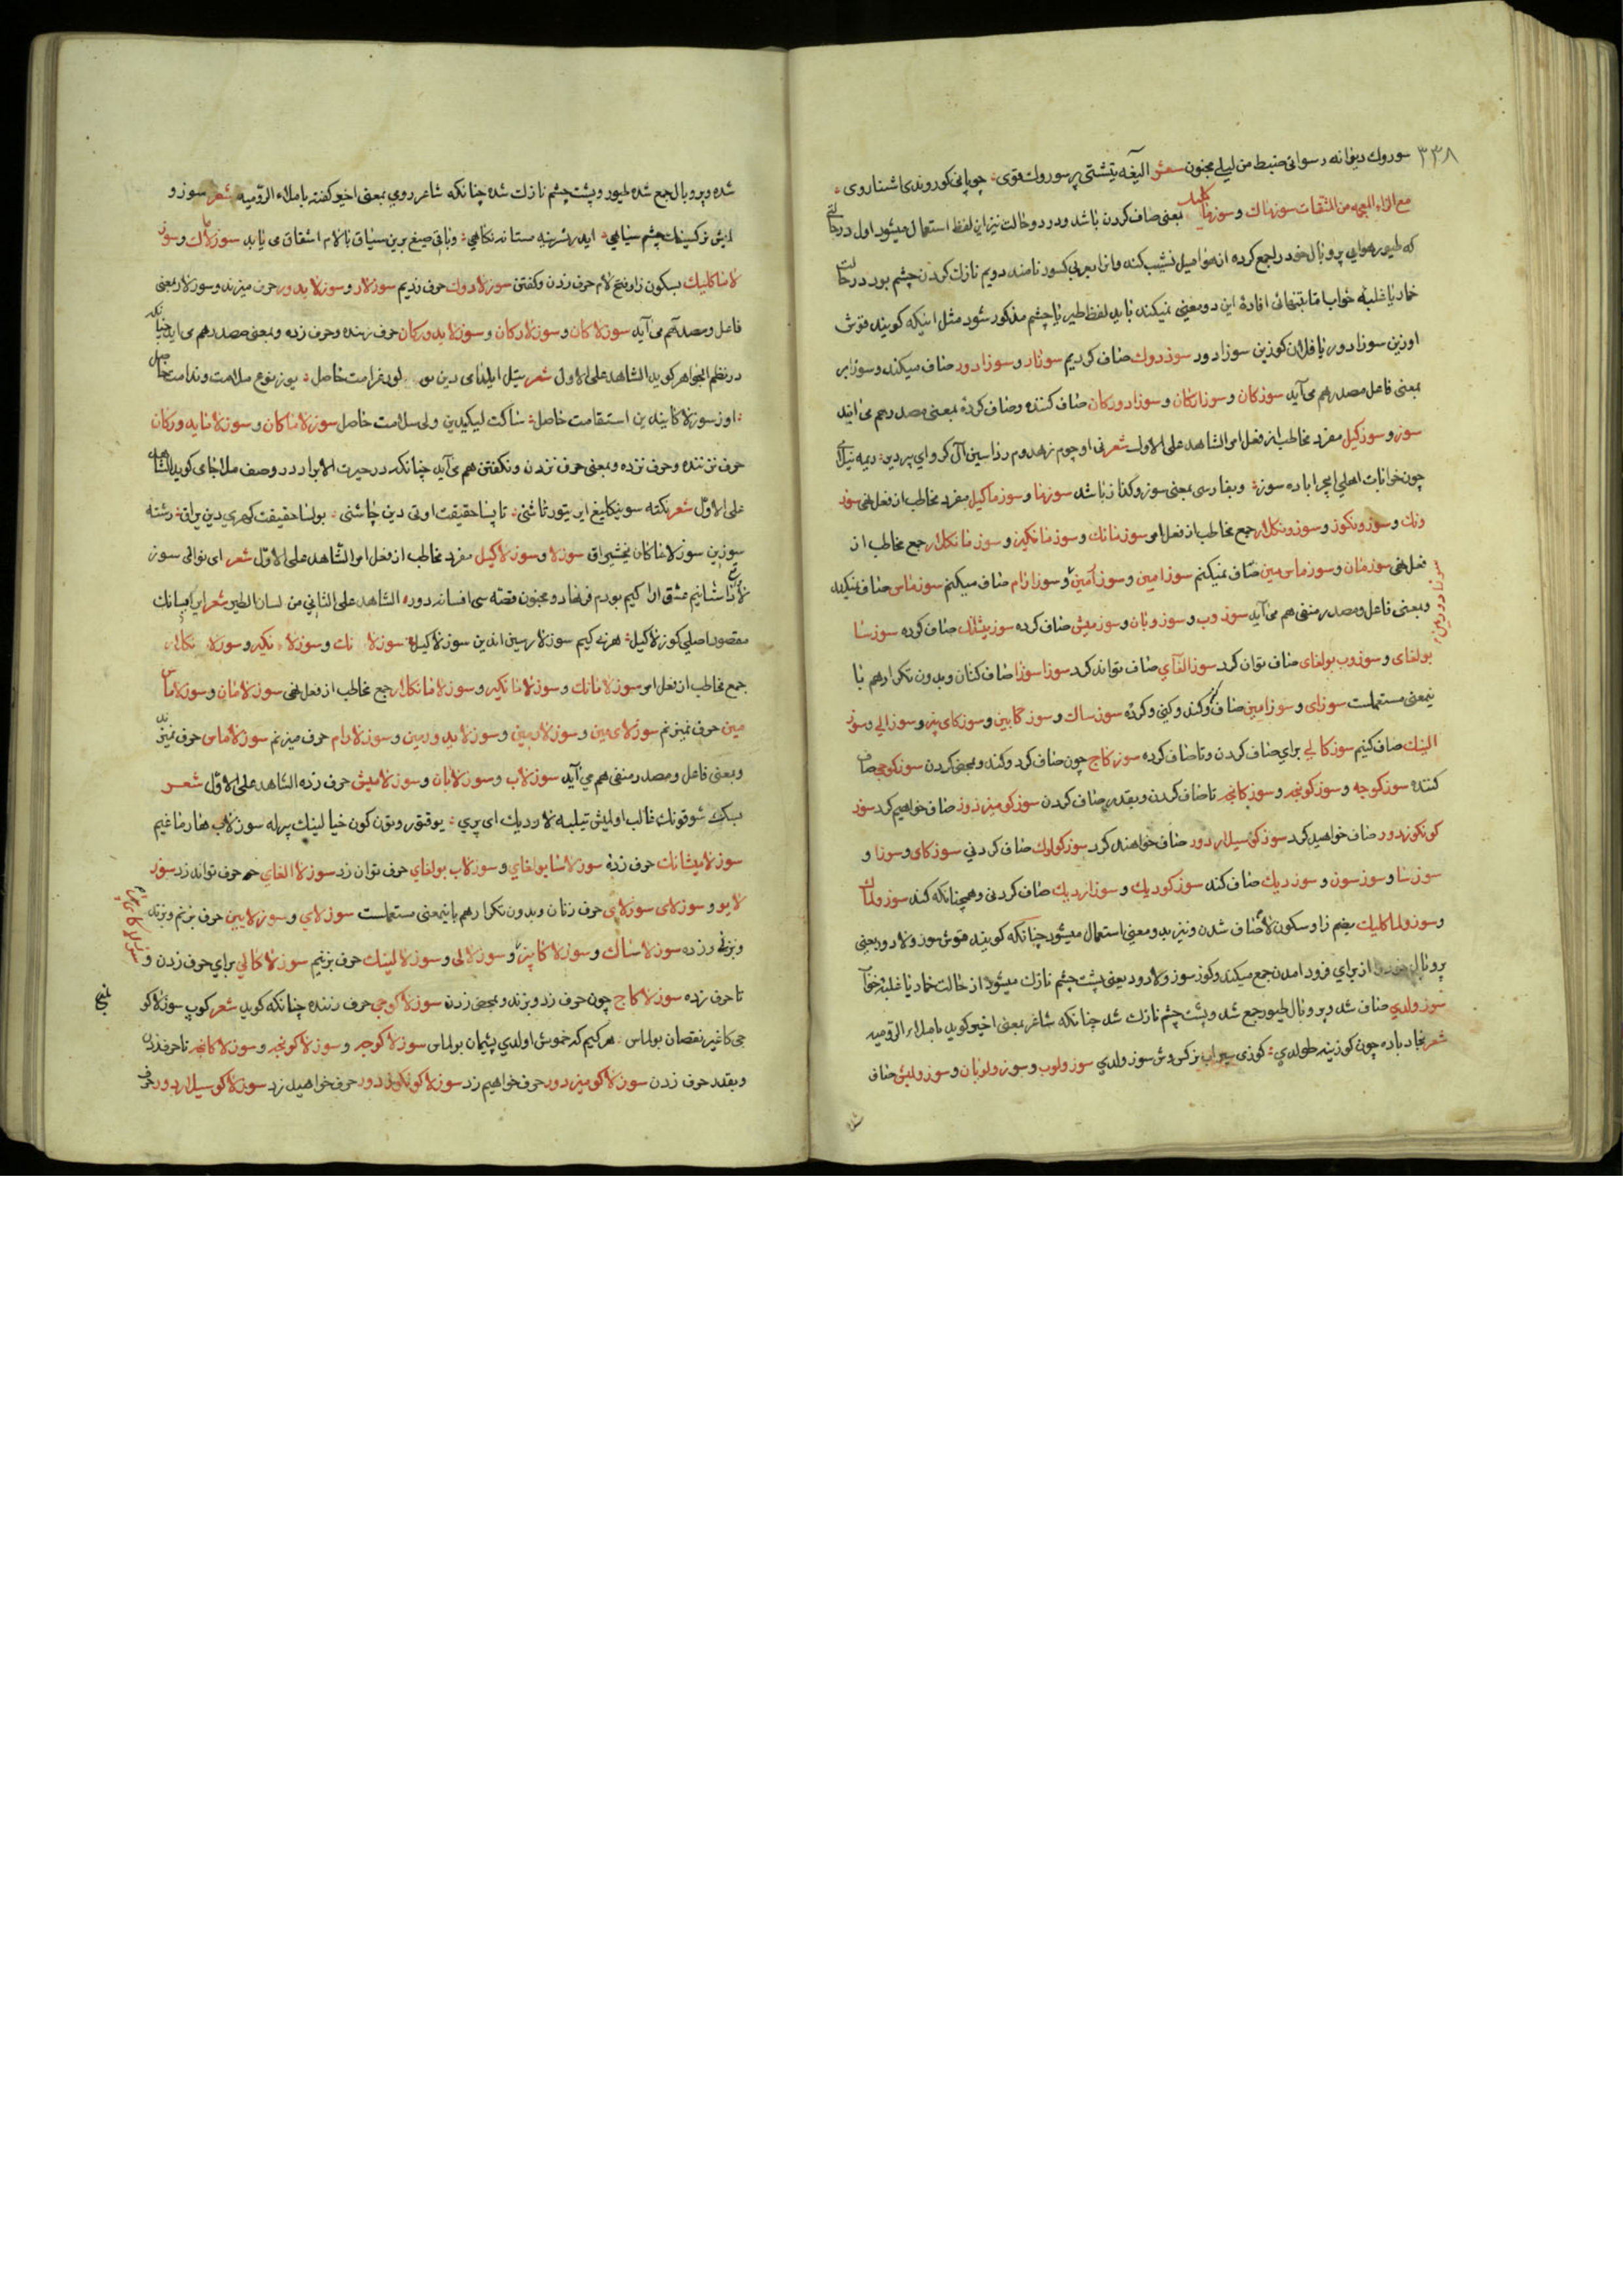 ۳۳۸
سوروك ديوانه رسوائی ضبط من ليلی مجنون شعر اليغه يتيشتی پر سوروك قوی چوپانی كوروندی اشنا روی
مع الزاء المعجمه من المثقات سوزماك و سوزماكليك بمعنی صاف كردن باشد و در دو حالت نيز اين لفظ استعمال ميشود اول در حالتی
كه طيور هوايی پر و بال خود را جمع كرده از هوا ميل نشيب كند و انرا بعربی كسور نامند دويم نازك كردن چشم بود در حالت
خمار يا غلبه خواب اما بتنهائی افادۀ اين دو معنی نميكند بايد لفظ طير يا چشم مذكور شود مثل اينكه كويند قوش
اوزين سوزادور يا فلان كوزين سوزادور سوزدوك صاف كرديم سوزار و سوزادور صاف ميكند و سوزار
بمعنی فاعل مصدر هم می آيد سوزكان و سوزاركان و سوزادوركان صاف كننده و صاف كرده بمعنی مصدر هم می آيد
سوز و سوزكيل مفرد مخاطب از فعل امر الشاهد علی الاول شعر
چون خرابات اهلی ايچرا باده سوز و بفارسی بمعنی سوز و كداز باشد سوزما و سوزماكيل مفرد مخاطب از فعل نهی سوز
ونك و سوزونكوز و سوزونكلار جمع مخاطب از فعل امر سوزمانك و سوزمانكيز و سوزمانكلار جمع مخاطب از
فعل نهی سوزمان و سوزماس مين صاف نميكنم سوزامين و سوزارمين و سوزارام صاف ميكنم سوزماس صاف نميكند
و بمعنی فاعل و مصدر منفی هم می آيد سوزوب و سوزوبان و سوزميش صاف كرده سوزميشانك صاف كرده سوزسا
بولغای و سوزوب بولغای صاف توان كرد سوزالغای صاف تواند كرد سوزا سوزا صاف كنان و بدون تكرار هم با
ينمعنی مستعملست سوزای و سوزامين صاف كنم و كند و كنی و كرده سوزساك و سوزكابين و سوزكای بز و سوزالی و سوز
الينك صاف كنيم سوزكالی برای صاف كردن و تا صاف كرده سوزكاج چون صاف كرد و كند و بمحض كردن سوزكوجی صاف
كننده سوزكوجه و سوزكونجه و سوزكانجه تا صاف كردن و بقدر صاف كردن سوزكوميزدور صاف خواهيم كرد سوز
كونكوزدور صاف خواهيد كرد سوزكوسيلاردور صاف خواهند كرد سوزكولوك صاف كردنی سوزكای و سوزا و
سوزسا و سوزسون و سوزديك صاف كند سوزكوديك و سوزارديك صاف كردنی و همچنانكه كند سوزولماك
و سوزولماكليك بضم زا و سكون لام صاف شدن و نيز بدو معنی استعمال ميشود چنانكه كويند قوش سوزولادور يعنی
پر و بال خود را از برای فرود امدن جمع ميكند و كوز سوزولادور يعنی پشت چشم نازك ميشود از حالت خمار يا غلبه خواب
سوزولدی صاف شد و پر و بال طيور جمع شد و پشت چشم نازك شد چنانكه شاعر بمعنی اخير كويد باملاء الروميه
شعر نجا دباده چون كوزينه طولدی كوزی سيراب نركس دش سوزولدی سوزولوب و سوزولوبان و سوزولميش صاف
شده
شده و پر و بال جمع شده طيور و پشت چشم نازك شده چنانكه شاعر رومی بمعنی اخير كفته باملاء الروميه شعر سوزو
لميش نركسينك چشم سياهی ايدر هر نه مستانه نكاهی و باقی صيغ برين سياق بالام اشتقاق می يابد سوزلاماك و سوز
لاماكليك بسكون زا و فتح لام حرف زدن و كفتن سوزلادوك حرف زديم سوزلار و سوزلايدور حرف ميزند و سوزلار بمعنی
فاعل و مصدر هم می آيد سوزلاكان و سوزلاركان و سوزلايدوركان حرف زننده و حرف زده و بمعنی مصدر هم می آيد چنانكه
در نظم الجواهر كويد الشاهد علی الاول شعر تيل ايلماى دين بولور غرامت حاصل يوز نوع ملامت و ندامت حاصل
اوز سوزلاكانيدين استقامت حاصل ساكت ليكيدين ولی سلامت حاصل سوزلاماكان و سوزلامايدوركان
حرف نزننده و حرف نزده و بمعنی حرف نزدن و نكفتن هم می آيد چنانكه در حيرت الابرار در وصف ملا جامی كويد الشاهد
علی الاول شعر نكته سوينكاليغ اين يتور تاشنی تاپسا حقيقت اوتی دين چاشنی بولسا حقيقت كهری دين يراق رشته
سوزين سوزلاماكان يخشيراق سوزلا و سوزلاكيل مفرد مخاطب از فعل امر الشاهد علی الاول شعر
كيم بودم فرهاد و مجنون قصه سی افسانه دوره الشاهد علی الثانی من لسان الطير شعر
مقصود اصلی كوزلاكيل هر نه كيم سوزلارسين اندين سوزلاكيل سوزلانك و سوزلانكيز و سوزلانكلار
جمع مخاطب از فعل امر سوزلامانك و سوزلامانكيز و سوزلامانكلار جمع مخاطب از فعل نهی سوزلامان و سوزلاماس
مين حرف نميزنم سوزلای مين و سوزلارمين و سوزلايدورمين و سوزلارام حرف ميزنم سوزلاماس حرف نميزند
و بمعنی فاعل و مصدر منفی هم می آيد سوزلاب و سوزلابان و سوزلاميش حرف زده الشاهد علی الاول شعر
بسكه شوقونك غالب اوليش تيلبه لارديك ای پری يوقتور و تون كون خيالينك بيرله سوزلاب هارماغيم
سوزلاميشانك حرف زده سوزلاسا بولغای و سوزلاب بولغای حرف توان زد سوزلاالغای حرف تواند زد سوز
لايو و سوزلای سوزلای حرف زنان و بدون تكرار هم باينمعنی مستعملست سوزلای و سوزلايين حرف بزنم و بزند
و بزنی و زده سوزلاساك و سوزلاكابز و سوزلالی و سوزلالينك حرف بزنيم سوزلاكالی برای حرف زدن و
تا حرف زده سوزلاكاج چون حرف زد و بزند و بمحض زدن سوزلاكوجی حرف زننده چنانكه كويد شعر كوپ سوزلاكو
جی كاغير نقصان بولماس هر كيم كه خموش اولدی پشيمان بولماس سوزلاكوجه و سوزلاكونجه و سوزلاكانجه تا حرف زدن
و بقدر حرف زدن سوزلاكوميزدور حرف خواهيم زد سوزلاكونكوزدور حرف خواهيد زد سوزلاكوسيلاردور حرف